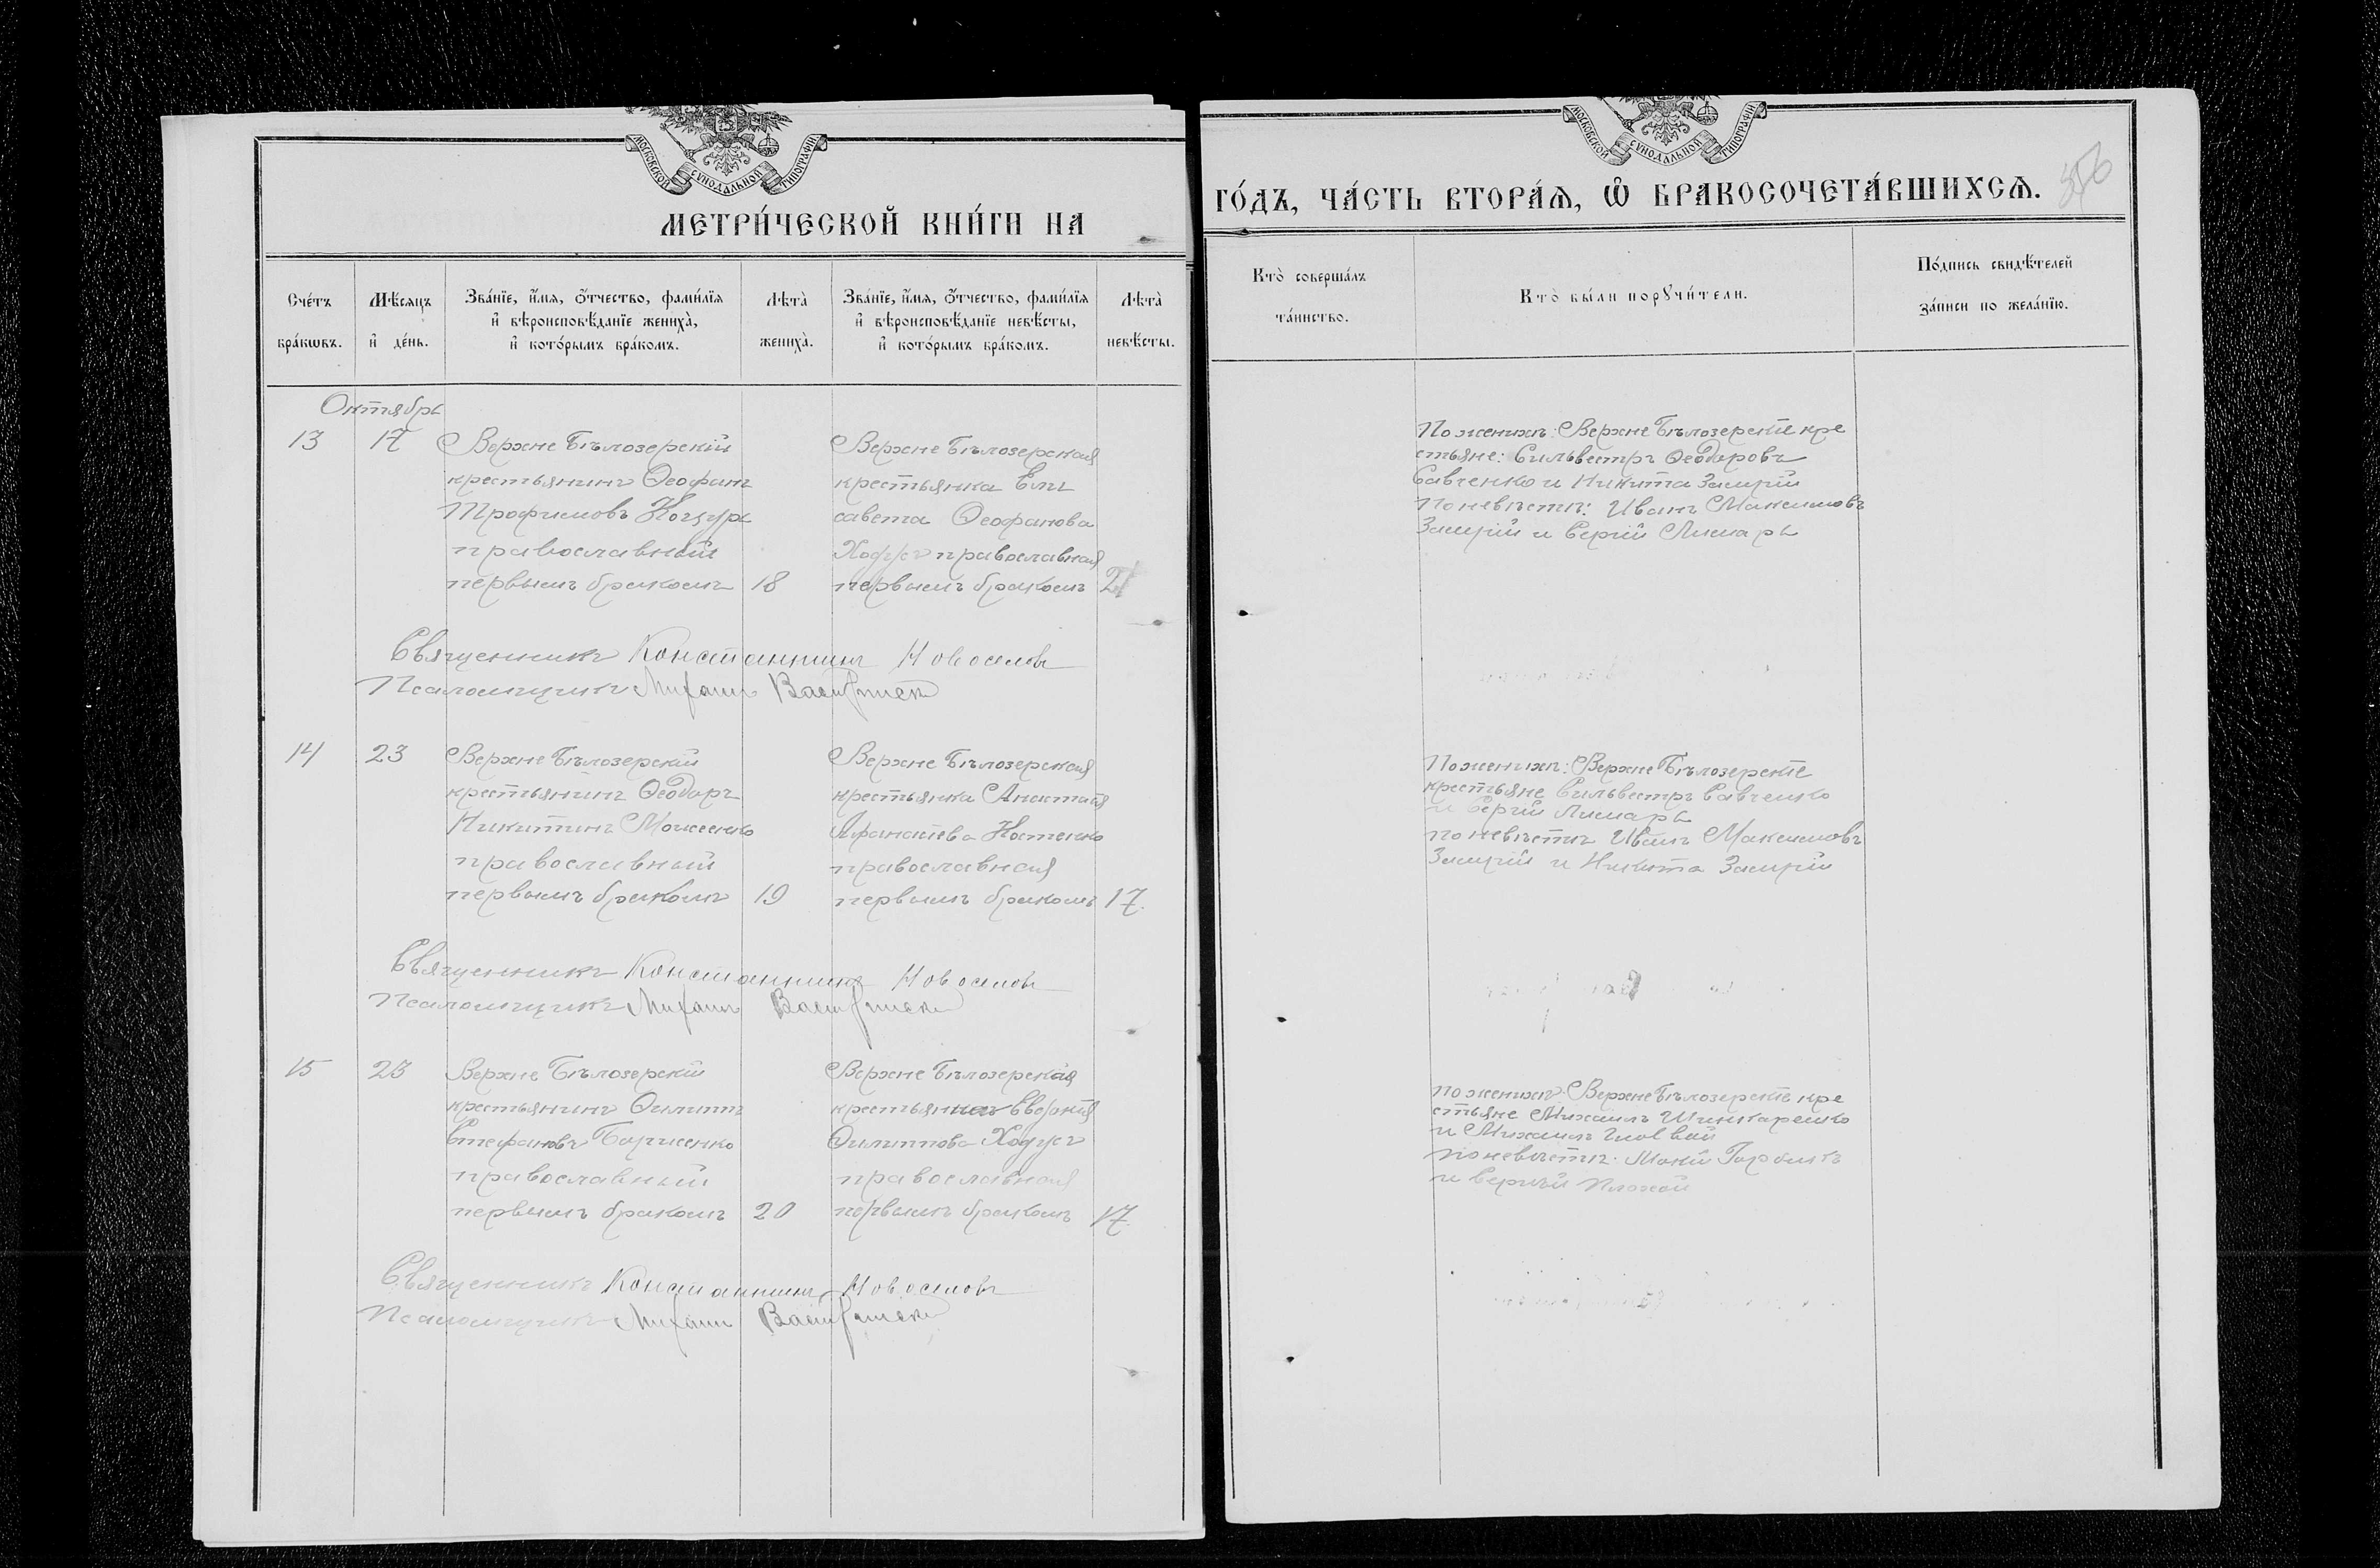 МОСКОВСКОЙ СѴНОДАЛЬНОЙ ТИПОГРАФІИ
МЕТРИ́ЧЕСКОЙ КНИ́ГИ НА
Сче́тъ
бра́кѡвъ.
Мѣ́сяцъ
и҆ де́нь.
Зва́нїе, и҆́мя, ѻ҆́тчество, фами́лїя
и҆ вѣроисповѣ́данїе жениха̀,
и҆ кото́рымъ бра́комъ.
Лѣта̀
жениха̀.
Зва́нїе, и҆́мя, ѻ҆́тчество, фами́лїя
и҆ вѣроисповѣ́данїе невѣ́сты,
и҆ кото́рымъ бра́комъ.
Лѣта̀
невѣ́сты.
Октябрь
13
17
Верхне Бѣлозерскій
крестьянинъ Ѳеофанъ
Трофимовъ
православный
первымъ бракомъ
18
Верхне Бѣлозерская
крестьянка Ели
савета Ѳеофанова
Ходусъ православная
первымъ бракомъ
21
Священникъ Константинъ Новоселовъ
Псаломщикъ Михаилъ
14
23
Верхне Бѣлозерскій
крестьянинъ Ѳеодоръ
Никитинъ Моисеенко
православный
первымъ бракомъ
19
Верхне Бѣлозерская
крестьянка Анастасія
Афанасіева Костенко
православная
первымъ бракомъ
17.
Священникъ Константинъ Новоселовъ
Псаломщикъ Михаилъ
15
23
Верхне Бѣлозерскій
крестьянинъ Филиппъ
Стефановъ Борисенко
православный
первымъ бракомъ
20
Верхне Бѣлозерская
крестьянка Евфимія
Филиппова Ходусъ
православная
первымъ бракомъ
17.
Священникъ Константинъ Новоселовъ
Псаломщикъ Михаилъ
МОСКОВСКОЙ СѴНОДАЛЬНОЙ ТИПОГРАФІИ
ГО́ДЪ, ЧА́СТЬ ВТОРА́Я, Ѽ БРАКОСОЧЕТА́ВШИХСѦ.
Кто̀ соверша́лъ
та́инство.
Кто̀ бы́ли порꙋчи́тели.
По́дпись свидѣ́телей
за́писи по жела́нїю.
По женихѣ: Верхне Бѣлозерскіе кре
стьяне: Сильвестръ Ѳеодоровъ
Савченко и Никита Заицкій
По невѣстѣ: Иванъ Максимовъ
Заицкій и Сергій Лимарь
По женихѣ: Верхне Бѣлозерскіе
крестьяне Сильвестръ Савченко
и Сергій Лимарь
по невѣстѣ Иванъ Максимовъ
Заицкій и Никита Заицкій
по женихѣ: Верхне Бѣлозерскіе кре
стьяне Михаилъ Шинкаренко
и Михаилъ
по невѣстѣ:
и Сергій